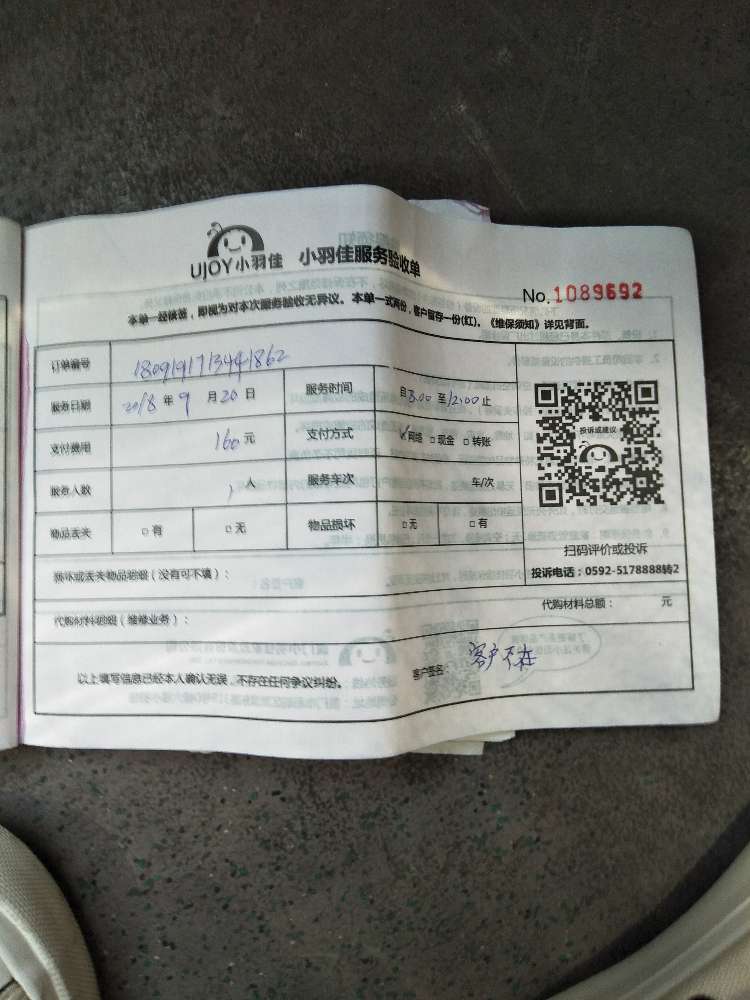 UJOY小羽佳 小羽佳服务验收单
No.1089692
本单一经候签，即视为对本次服务验收无异议。本单一式两份，客户留存一份(红)。《维保须知》详见背面。
订单编号
服务日期 2018 年 9 月 20 日 服务时间 自 8:00 至 12:00 止
支付费用 160 元 支付方式 ☑网络 □现金 □转账
服务人数 1 人 服务车次 车/次
物品丢失 □有 □无 物品损坏 □无 □有
投诉或建议
扫码评价或投诉
投诉电话：0592-5178888转2
损坏或丢失物品明细（没有可不填）：
代购材料明细（维修业务）： 代购材料总额： 元
以上填写信息已经本人确认无误，不存在任何争议纠纷。 客户签名： 客户不在